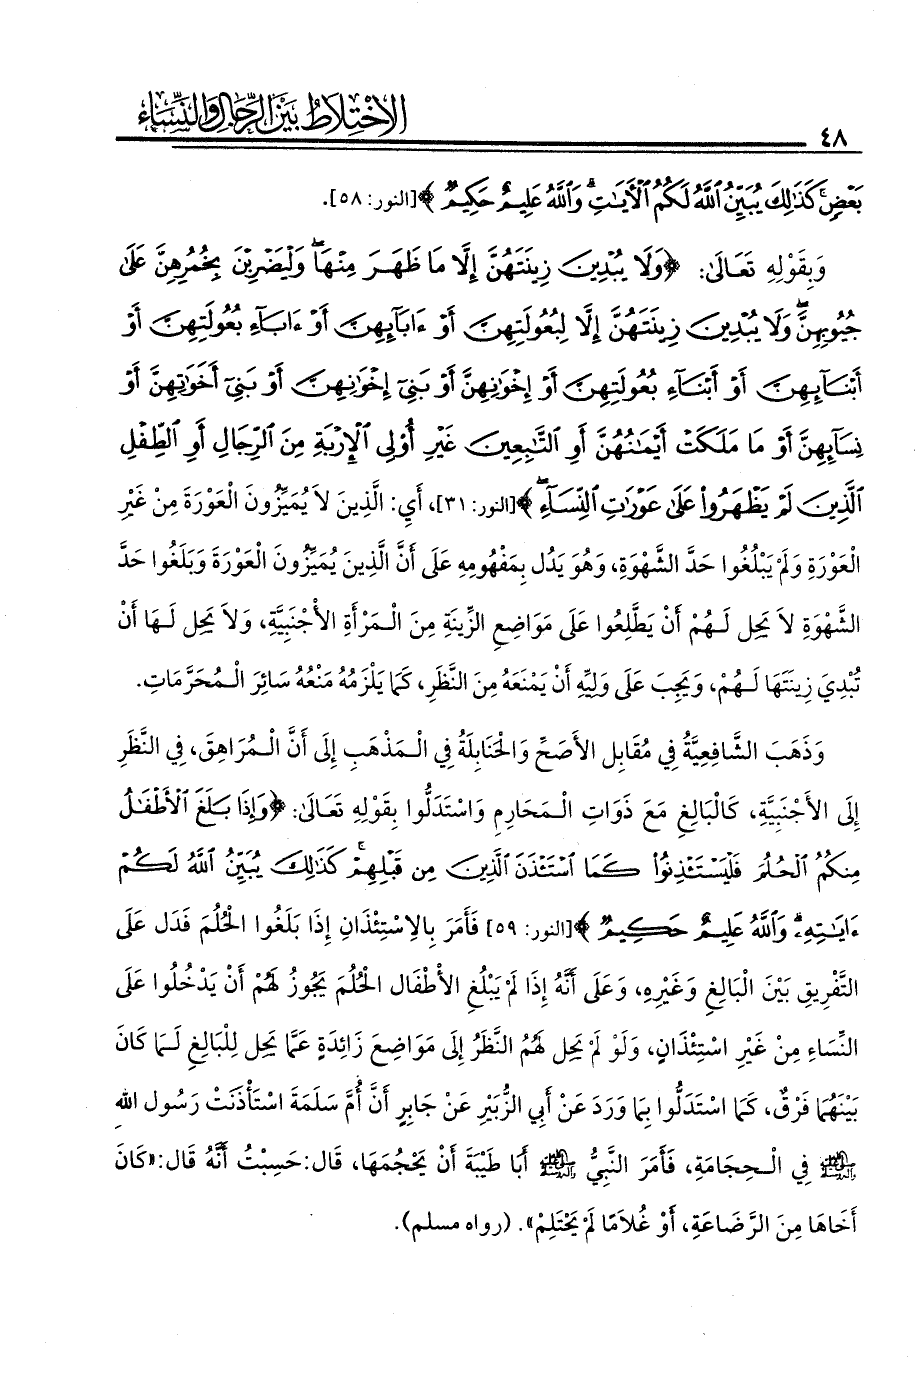 الاختلاط بين الرجال والنساء
٤٨
بَعْضٍ ۚ كَذَٰلِكَ يُبَيِّنُ ٱللَّهُ لَكُمُ ٱلْأَيَٰتِ ۗ وَٱللَّهُ عَلِيمٌ حَكِيمٌ ﴾[النور: ٥٨].
وَبِقَوْلِهِ تَعَالَىٰ: ﴿وَلَا يُبْدِينَ زِينَتَهُنَّ إِلَّا مَا ظَهَرَ مِنْهَا ۖ وَلْيَضْرِبْنَ بِخُمُرِهِنَّ عَلَىٰ
جُيُوبِهِنَّ ۖ وَلَا يُبْدِينَ زِينَتَهُنَّ إِلَّا لِبُعُولَتِهِنَّ أَوْ ءَابَآئِهِنَّ أَوْ ءَابَآءِ بُعُولَتِهِنَّ أَوْ
أَبْنَآئِهِنَّ أَوْ أَبْنَآءِ بُعُولَتِهِنَّ أَوْ إِخْوَٰنِهِنَّ أَوْ بَنِىٓ إِخْوَٰنِهِنَّ أَوْ بَنِىٓ أَخَوَٰتِهِنَّ أَوْ
نِسَآئِهِنَّ أَوْ مَا مَلَكَتْ أَيْمَٰنُهُنَّ أَوِ ٱلتَّٰبِعِينَ غَيْرِ أُوْلِى ٱلْإِرْبَةِ مِنَ ٱلرِّجَالِ أَوِ ٱلطِّفْلِ
ٱلَّذِينَ لَمْ يَظْهَرُوا۟ عَلَىٰ عَوْرَٰتِ ٱلنِّسَآءِ ۖ﴾[النور: ٣١]، أَيِ: الَّذِينَ لاَ يُمَيِّزُونَ الْعَوْرَةَ مِنْ غَيْرِ
الْعَوْرَةِ وَلَمْ يَبْلُغُوا حَدَّ الشَّهْوَةِ، وَهُوَ يَدُل بِمَفْهُومِهِ عَلَى أَنَّ الَّذِينَ يُمَيِّزُونَ الْعَوْرَةَ وَبَلَغُوا حَدَّ
الشَّهْوَةِ لاَ يَحِل لَهُمْ أَنْ يَطَّلِعُوا عَلَى مَوَاضِعِ الزِّينَةِ مِنَ الْمَرْأَةِ الأَجْنَبِيَّةِ، وَلاَ يَحِل لَهَا أَنْ
تُبْدِيَ زِينَتَهَا لَهُمْ، وَيَجِبَ عَلَى وَلِيِّهِ أَنْ يَمْنَعَهُ مِنَ النَّظَرِ، كَمَا يَلْزَمُهُ مَنْعُهُ سَائِرَ الْمُحَرَّمَاتِ.
وَذَهَبَ الشَّافِعِيَّةُ فِي مُقَابِل الأَصَحِّ وَالْحَنَابِلَةُ فِي الْمَذْهَبِ إِلَى أَنَّ الْمُرَاهِقَ، فِي النَّظَرِ
إِلَى الأَجْنَبِيَّةِ، كَالْبَالِغِ مَعَ ذَوَاتِ الْمَحَارِمِ وَاسْتَدَلُّوا بِقَوْلِهِ تَعَالَى: ﴿وَإِذَا بَلَغَ ٱلْأَطْفَٰلُ
مِنكُمُ ٱلْحُلُمَ فَلْيَسْتَـْٔذِنُوا۟ كَمَا ٱسْتَـْٔذَنَ ٱلَّذِينَ مِن قَبْلِهِمْ ۚ كَذَٰلِكَ يُبَيِّنُ ٱللَّهُ لَكُمْ
ءَايَٰتِهِۦ ۗ وَٱللَّهُ عَلِيمٌ حَكِيمٌ ﴾[النور: ٥٩] فَأَمَرَ بِالاِسْتِئْذَانِ إِذَا بَلَغُوا الْحُلُمَ فَدَل عَلَى
التَّفْرِيقِ بَيْنَ الْبَالِغِ وَغَيْرِهِ، وَعَلَى أَنَّهُ إِذَا لَمْ يَبْلُغِ الأَطْفَال الْحُلُمَ يَجُوزُ لَهُمْ أَنْ يَدْخُلُوا عَلَى
النِّسَاءِ مِنْ غَيْرِ اسْتِئْذَانٍ، وَلَوْ لَمْ يَحِل لَهُمُ النَّظَرُ إِلَى مَوَاضِعَ زَائِدَةٍ عَمَّا يَحِل لِلْبَالِغِ لَمَا كَانَ
بَيْنَهُمَا فَرْقٌ، كَمَا اسْتَدَلُّوا بِمَا وَرَدَ عَنْ أَبِي الزُّبَيْرِ عَنْ جَابِرٍ أَنَّ أُمَّ سَلَمَةَ اسْتَأْذَنَتْ رَسُول اللهِ
ﷺ فِي الْحِجَامَةِ، فَأَمَرَ النَّبِيُّ ﷺ أَبَا طَيْبَةَ أَنْ يَحْجُمَهَا، قَال: حَسِبْتُ أَنَّهُ قَال: «كَانَ
أَخَاهَا مِنَ الرَّضَاعَةِ، أَوْ غُلاَمًا لَمْ يَحْتَلِمْ». (رواه مسلم).